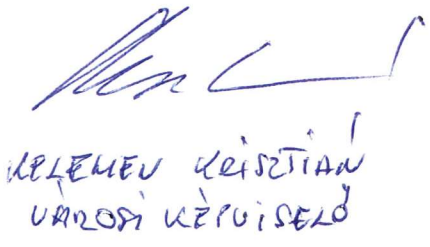 KELEMEN KRISZTIÁN
VÁROSI KÉPVISELŐ